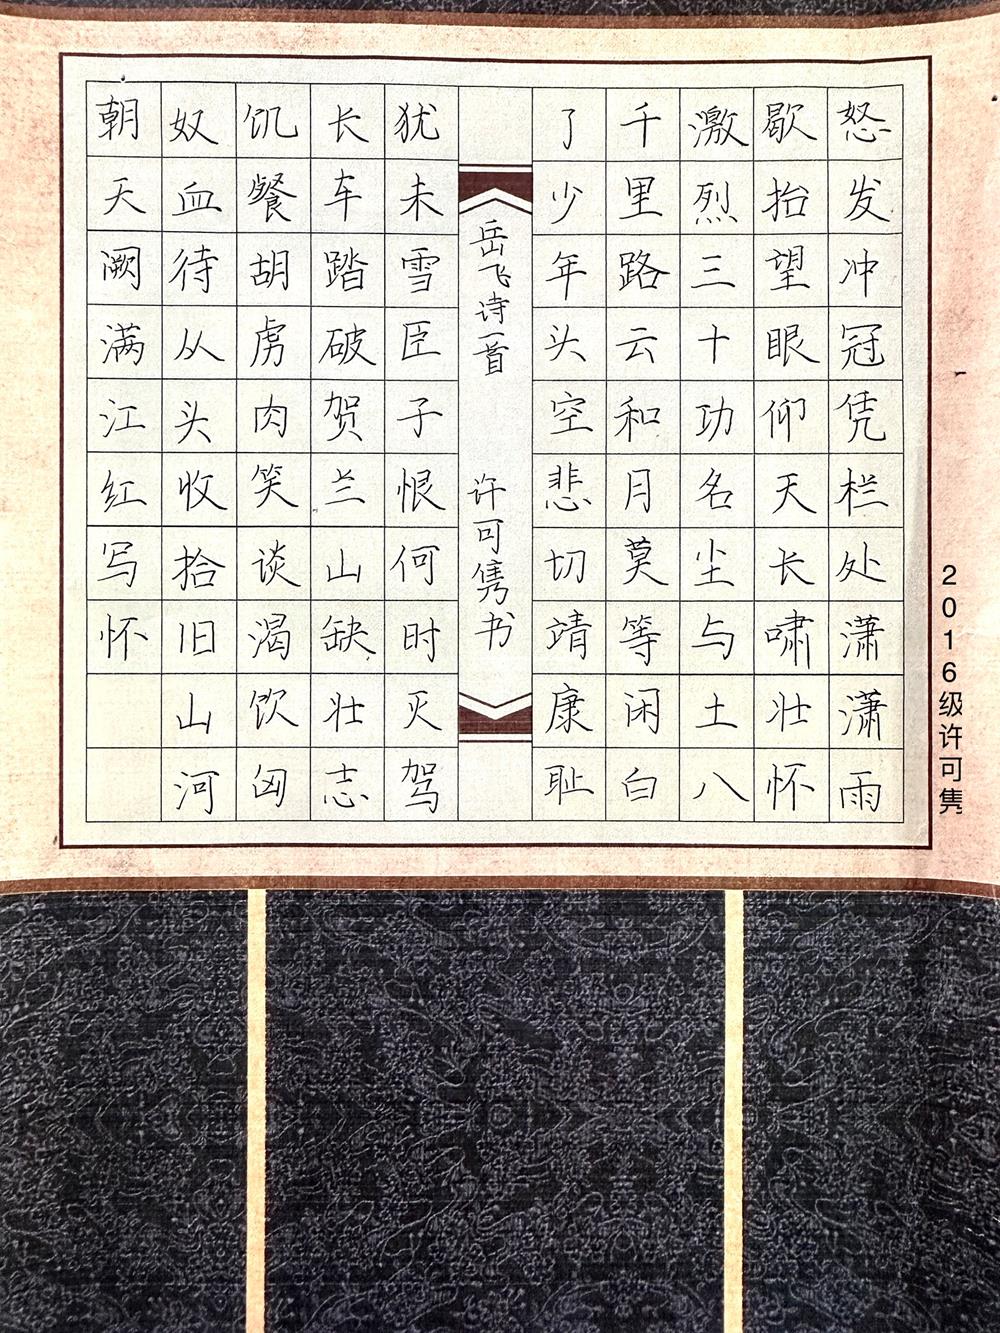 怒发冲冠凭栏处潇潇雨
歇抬望眼仰天长啸壮怀
激烈三十功名尘与土八
千里路云和月莫等闲白
了少年头空悲切靖康耻
岳飞诗一首 许可隽书
犹未雪臣子恨何时灭驾
长车踏破贺兰山缺壮志
饥餐胡虏肉笑谈渴饮匈
奴血待从头收拾旧山河
朝天阙满江红写怀
2016级许可隽